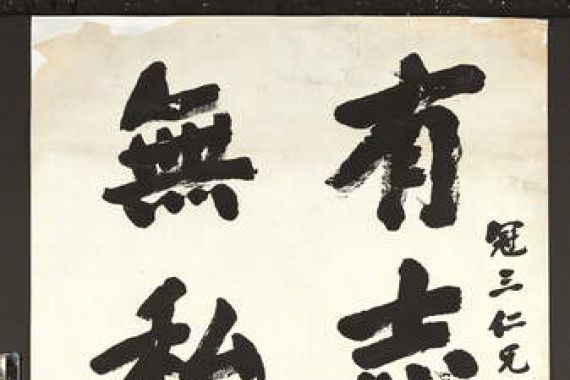 冠三仁兄
有志
無私